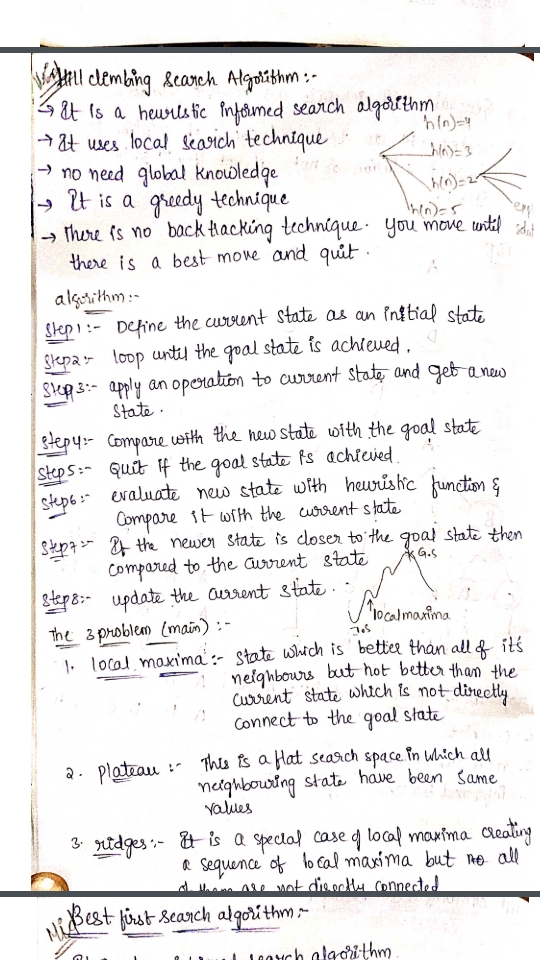 Hill climbing Search Algorithm :-
→ It is a heuristic informed search algorithm
→ It uses local search technique
→ no need global knowledge
→ It is a greedy technique
→ There is no backtracking technique. you move until
there is a best move and quit.
h(n)=4
h(n)=3
h(n)=2
h(n)=5
algorithm :-
Step1:- Define the current state as an initial state
Step2:- loop until the goal state is achieved.
Step3:- apply an operation to current state and get a new
state.
Step4:- Compare with the new state with the goal state
Step5:- Quit if the goal state is achieved.
Step6:- evaluate new state with heuristic function &
Compare it with the current state
Step7:- If the newer state is closer to the goal state then
compared to the current state
Step8:- update the current state.
G.S
local maxima
I.S
The 3 problem (main) :-
1. local maxima :- State which is better than all of it's
neighbours but not better than the
current state which is not directly
connect to the goal state
2. Plateau :- This is a flat search space in which all
neighbouring state have been same
values
3. ridges:- It is a special case of local maxima creating
a sequence of local maxima but all
of them are not directly connected
Best first search algorithm :-
search algorithm.